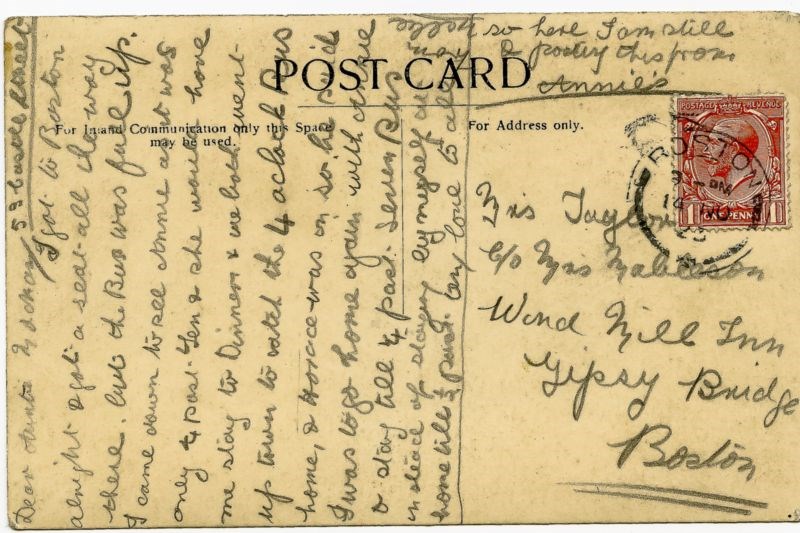 POST CARD
For Inland Communication only this Space may be used.
For Address only.
POSTAGE REVENUE
1 ONE PENNY 1
BOSTON
Mrs Taylor
c/o Mrs
Wind Mill Inn
Gipsy Bridge
Boston
Dear
I got to Boston
alright & got a seat all the way
there. but the Bus was full up.
I came down to see Annie as it was
only ¼ past Ten & she would have
me stay to Dinner & we both went
up town to catch the 4 aclock Bus
home, & Horace was on so he said
I was to go home again with Annie
& stay till ¼ past Seven Bus
instead of staying by myself at
home till ½ past. any love to all
so here I am still
& posting this from
Annie's